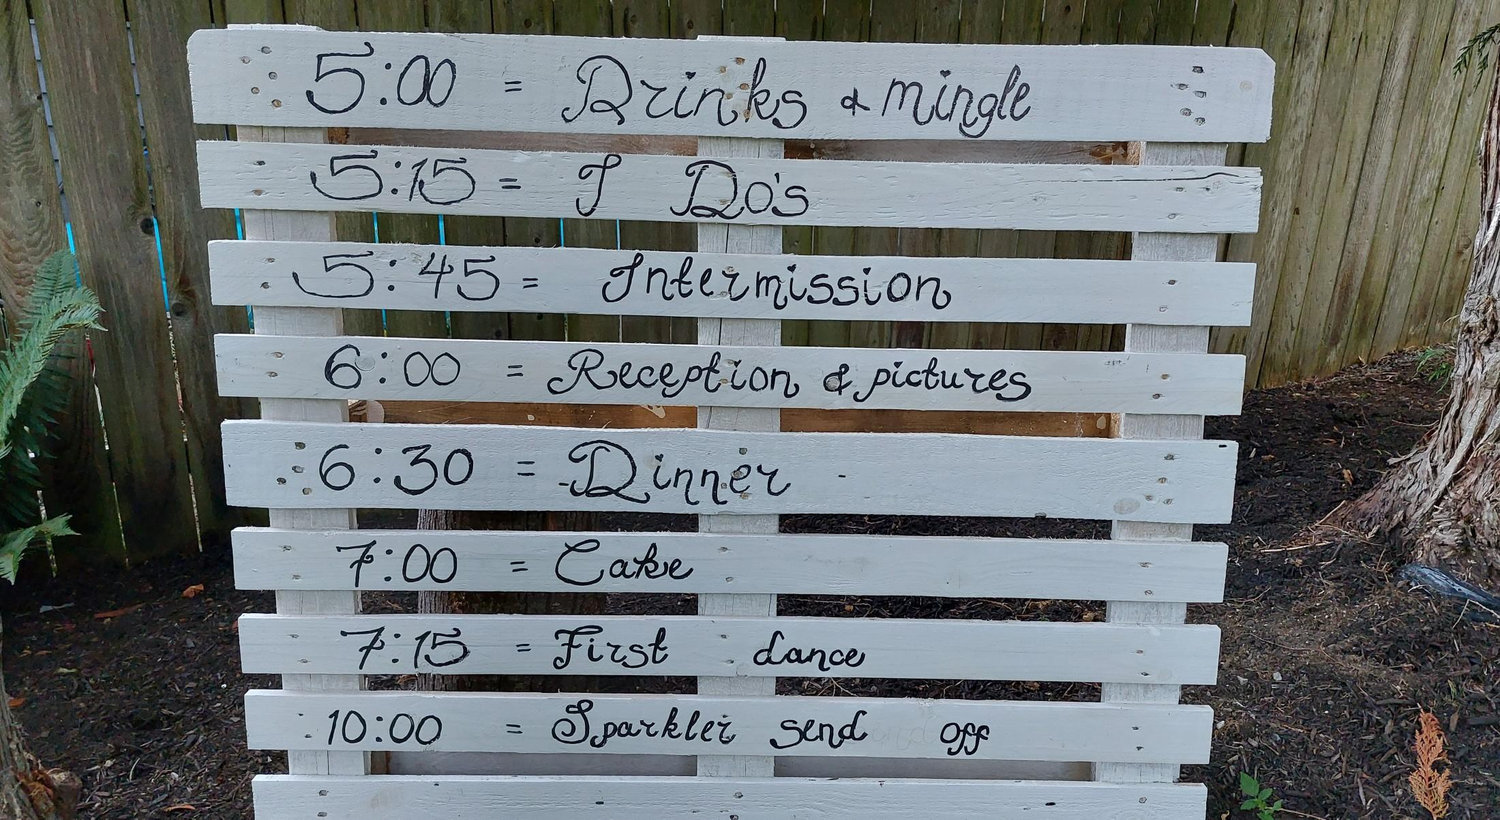 5:00 = Drinks & mingle
5:15 = I Do's
5:45 = Intermission
6:00 = Reception & pictures
6:30 = Dinner
7:00 = Cake
7:15 = First dance
10:00 = Sparkler send off